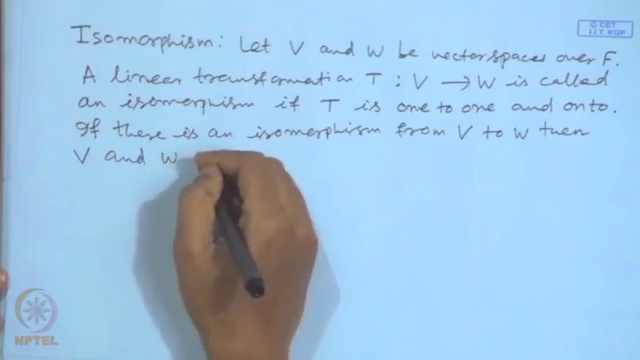 © CET
I.I.T. KGP
Isomorphism: Let V and W be vector spaces over F.
A linear transformation T : V → W is called
an isomorphism if T is one to one and onto.
If there is an isomorphism from V to W then
V and W
NPTEL